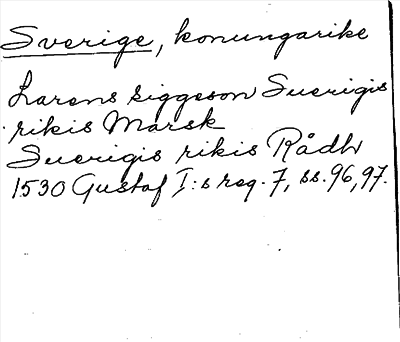 Sverige, konungarike
Larens siggeson Suerigis
rikis Marsk
Suerigis rikis Rådh
1530 Gustaf I:s reg. 7, ss. 96, 97.